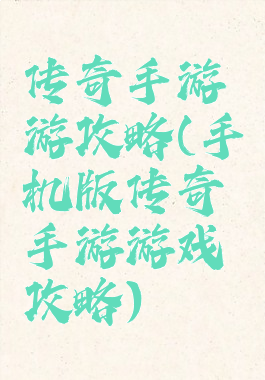 传奇手游
游攻略(手
机版传奇
手游游戏
攻略)